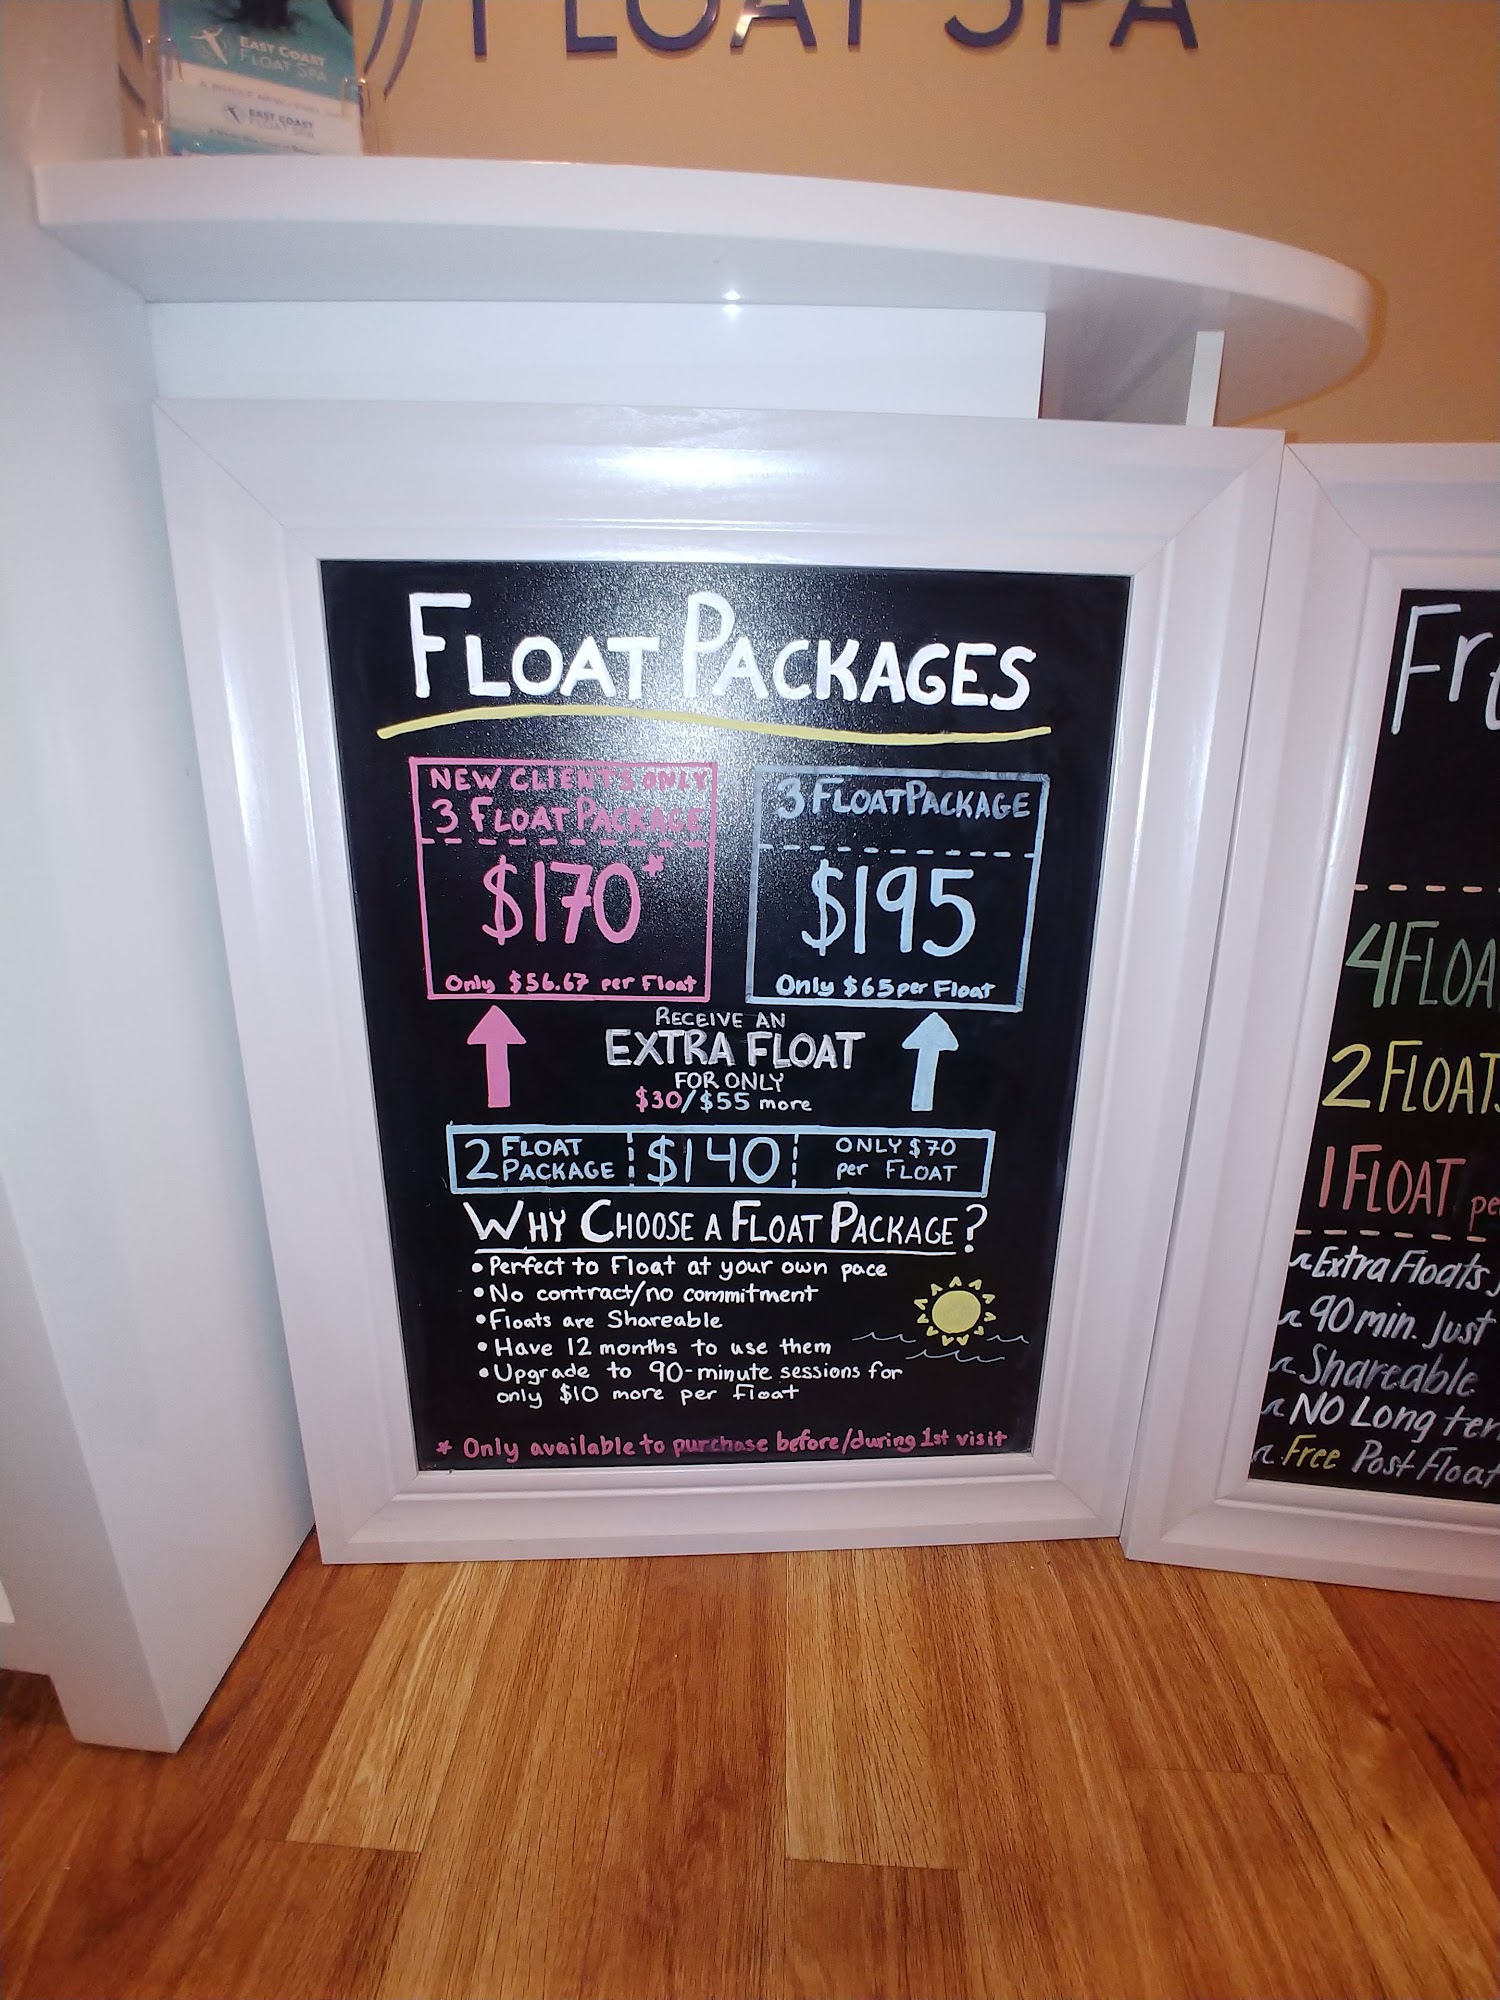 FLOAT SPA
EAST COAST
FLOAT SPA
EAST COAST
FLOAT SPA
FLOAT PACKAGES
NEW CLIENTS ONLY
3 FLOAT PACKAGE
$170*
Only $56.67 per Float
3 FLOAT PACKAGE
$195
Only $65 per Float
RECEIVE AN
EXTRA FLOAT
FOR ONLY
$30/$55 more
2 FLOAT PACKAGE $140 ONLY $70 per FLOAT
WHY CHOOSE A FLOAT PACKAGE?
• Perfect to Float at your own pace
• No contract/no commitment
• Floats are Shareable
• Have 12 months to use them
• Upgrade to 90-minute sessions for
only $10 more per Float
* Only available to purchase before/during 1st visit
4 FLOA
2 FLOATS
1 FLOAT pe
Extra Floats
90 min. Just
Shareable
NO Long ter
Free Post Float